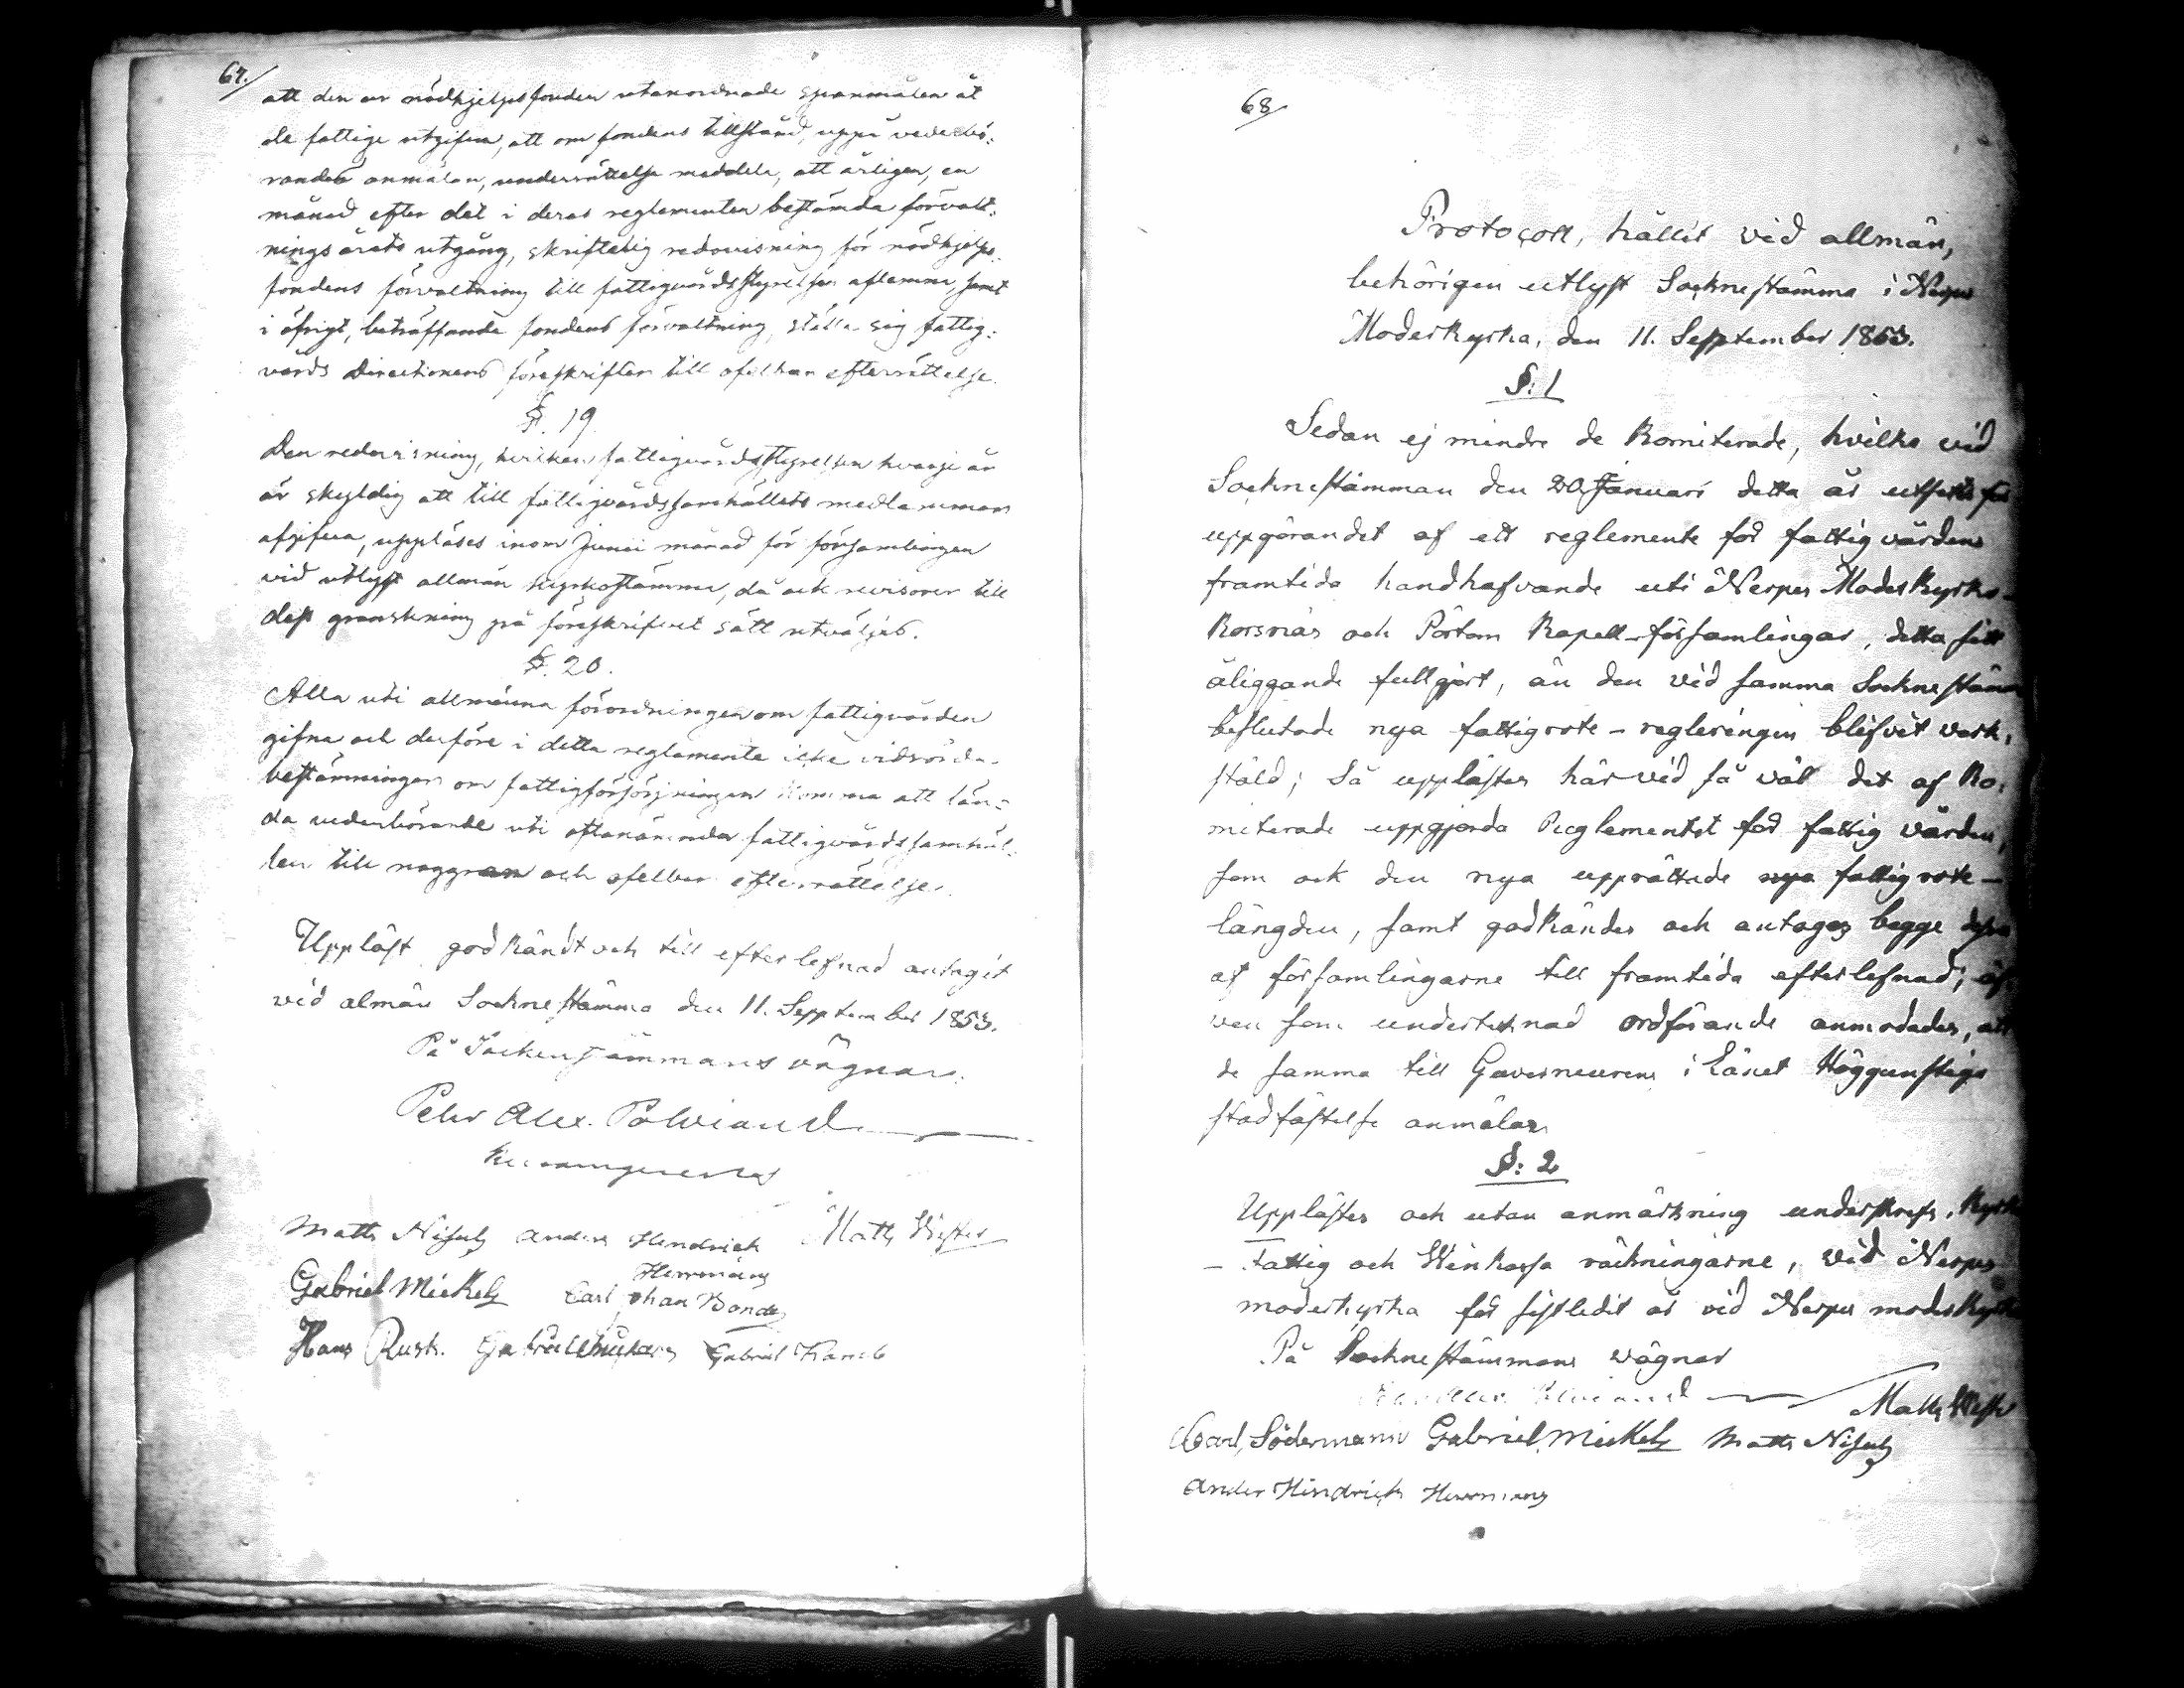 67.
att den ur nödhjelpsfonden utanordnade spanmålen åt
de fattige utgifva, att om fondens tillstånd, uppå vederbö:
randes anmälan, underrättelse meddela, att årligen, en
månad efter det i deras reglementen bestämda förvalt:
nings årets utgång, skriftelig redovisning för nödhjelps
fondens förvaltning till fattigvårdsstyrelsen aflemna, samt
i öfrigt, beträffande fondens förvaltning, ställa sig fattig:
vårds Directionens föreskrifter till ofelbar efterrättelse.
§. 19
Den redovisning, hvilken fattigvårdsstyrelsen hvarje år
är skyldig att till fattigvårdssamhällets medlemmar
afgifva, uppläses inom Junii månad för församlingen
vid utlyst allmän kyrkostämma, då ock revisorer till
dess granskning på föreskrifvet sätt utväljes.
§. 20.
Alla uti allmänna förordningen om fattigvården
gifna och derföre i detta reglemente icke vidrörda
bestämningar om fattigförsörjningen komma att län:
da vederbörande uti oftanämnda fattigvårdssamhäl:
len till noggran och ofelbar efterrättelse.
Uppläst godkändt och till efterlefnad antagit
vid almän Sockne stämma den 11. September 1853.
På Sockenstämmans vägnar:
Petr Alex. Polviand
Matts Nisuls Anders Hendrich Matts Wester
Herrmans
Gabriel Mickels Carl Johan Bonde
Hans Rusk. Gabriel
68
Protocoll, hållit vid allmän,
behörigen utlyst Sockne stämma i Nerpes
Moderkyrka, den 11. September 1853.
§: 1
Sedan ej mindre de Komiterade, hvilka vid
Sockne stämman den 20 Januari detta år utsetts för
uppgörandet af ett reglemente för fattigvårdens
framtida handhafvande uti Nerpes Moderkyrko-
Korsnäs och Pörtom Kapell-församlingar, detta sitt
åliggande fullgjort, än den vid samma Sockne stäm
beslutade nya fattigrote-regleringen blifvit verk,
stäld; Så upplästes härvid så väl det af Ko:
miterade uppgjorda Reglementet för fattig vården,
som ock den nya upprättade nya fattig rote-
längden, samt godkändes och antoges begge dessa
af församlingarne till framtida efterlefnad; äf
ven som undertecknad ordförande anmodades, att
de samma till Gouverneurens i Länet Höggunstiga
stadfästelse anmälan.
§: 2
Upplästes och utan anmärkning underskrefs, Kyrk
- Fattig och Winkassa räkningarne, vid Nerpes
moderkyrka för sistledit år vid Nerpes moderkyrka
På Sockne stämmans vägnar
Petr Alex. Polviand
Matts Weste
Carl Södermann Gabriel Mickels Matts Nisuls
Ander Hindrich Herrmans